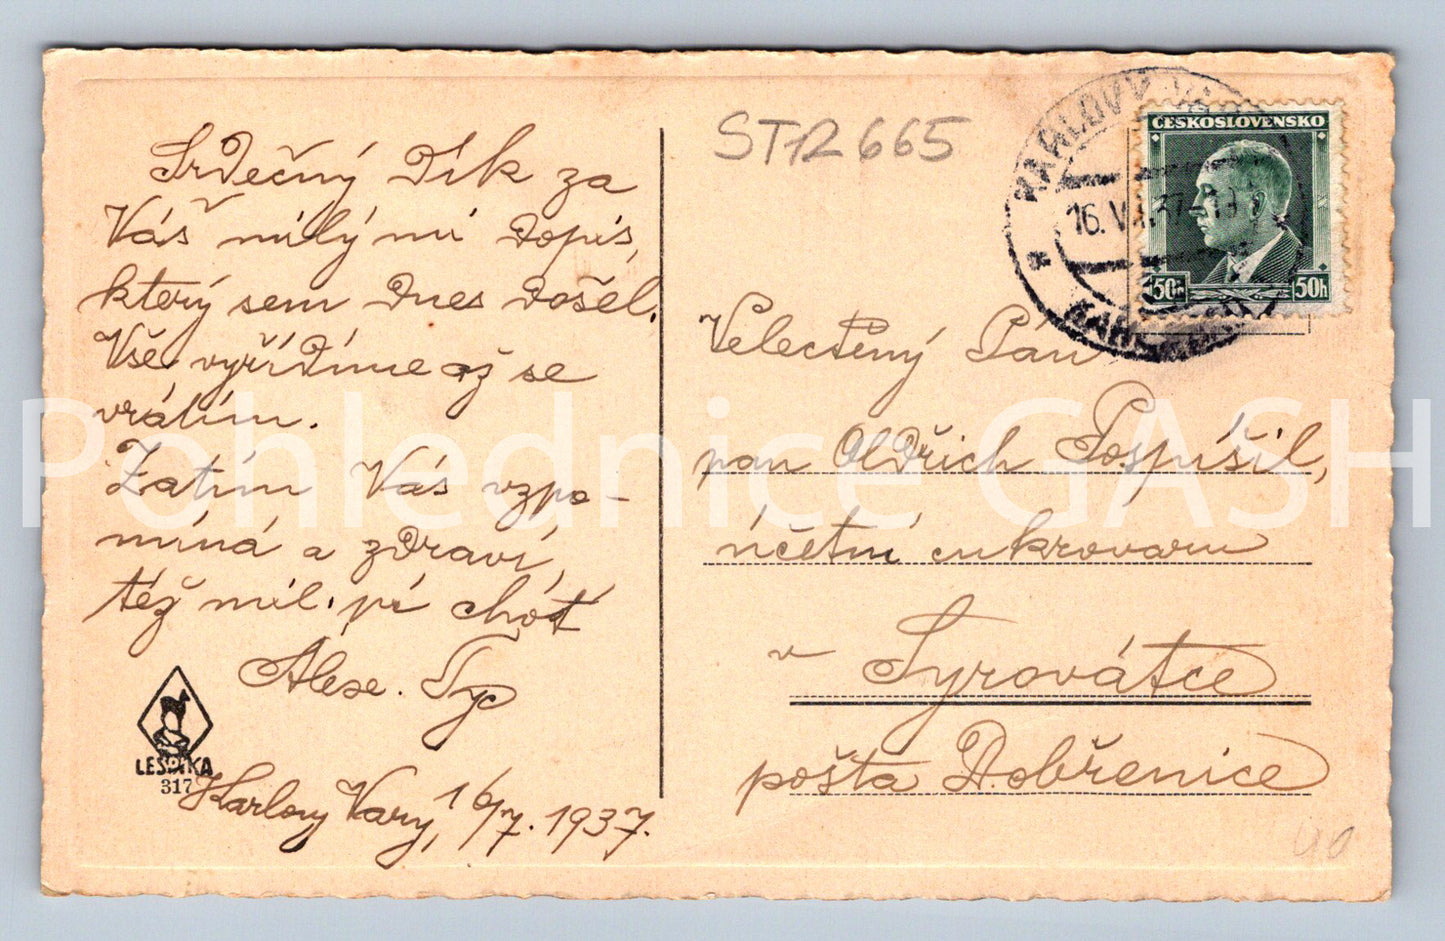 Srdečný dík za
Váš milý mi dopis,
který jsem dnes došel.
Vše vyřídíme až se
vrátím.
Zatím Vás vzpo-
míná a zdraví,
též mil. pí choť
Tyc
Karlovy Vary, 16/7. 1937.
LESÁTKA
317
ST12665
KARLOVY VARY
16. VII. 37
ČESKOSLOVENSKO
50h 50h
Velectěný Pán
pan Oldřich Pospíšil,
účetní cukrovaru
v Syrovátce
pošta Dobřenice
40
Pohlednice GASH